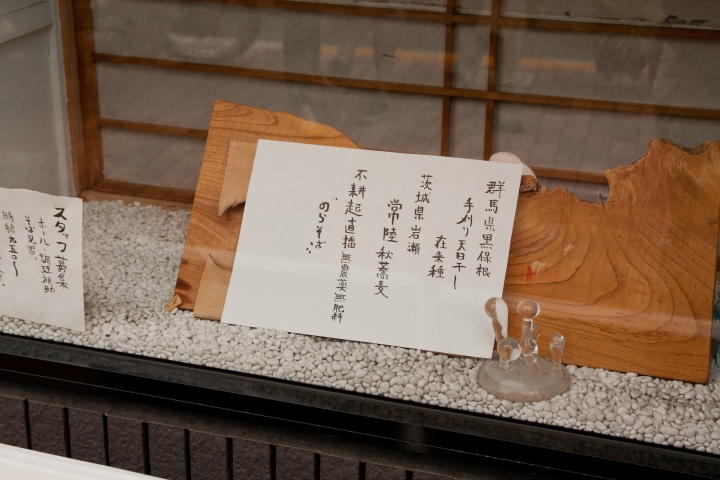 群馬県黒保根
手刈り天日干し
在来種
茨城県岩瀬
常陸秋蕎麦
不耕起直播無農薬無肥料
のらそば
スタッフ募集
ホール、調理補助
そば見習、
時給